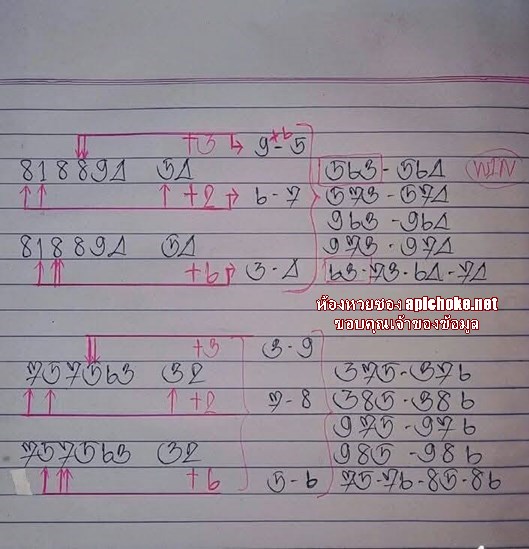 +3 9 - 5 +6
818894 54 563 - 564 WIN
+2 6 - 7 573 - 574
963 - 964
818894 54 973 - 974
+6 3 - 4 63 - 73 - 64 - 74
ห้องหวยซอง apichoke.net
ขอบคุณเจ้าของข้อมูล
+3 3 - 9
757563 32 375 - 376
+2 7 - 8 385 - 386
975 - 976
757563 32 985 - 986
+6 5 - 6 75 - 76 - 85 - 86